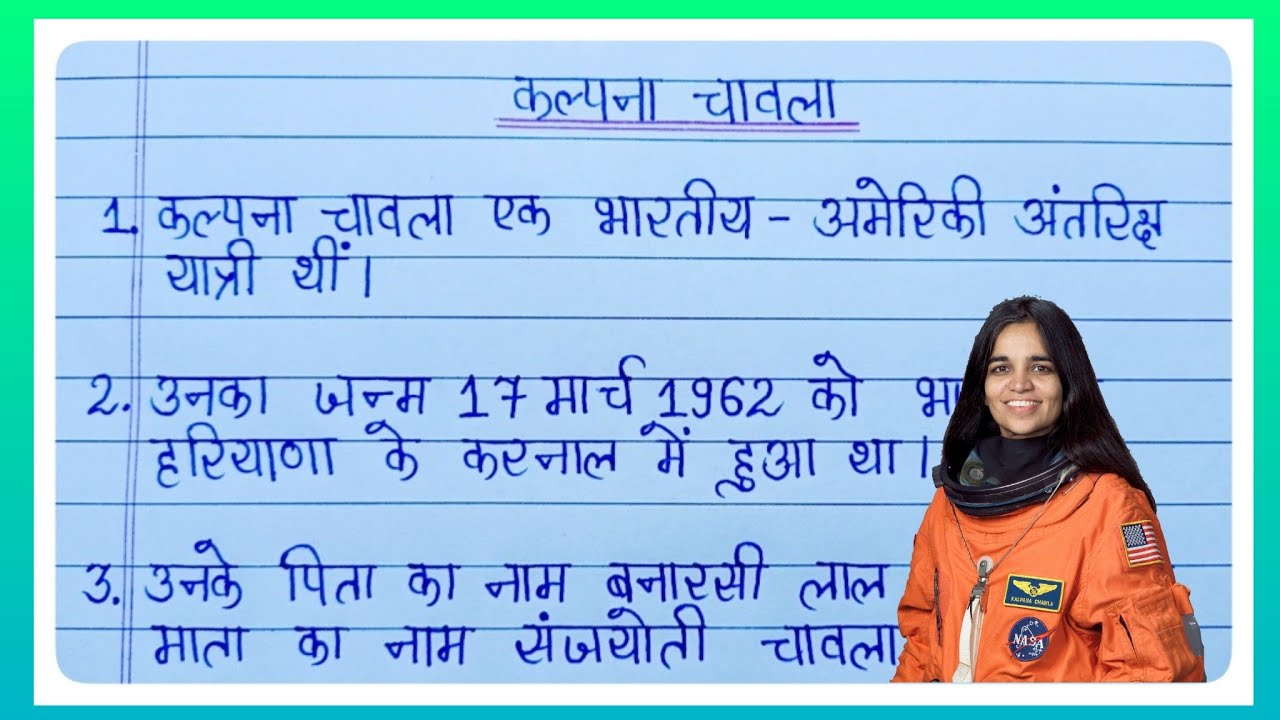 कल्पना चावला
1. कल्पना चावला एक भारतीय - अमेरिकी अंतरिक्ष
यात्री थीं।
2. उनका जन्म 17 मार्च 1962 को
हरियाणा के करनाल में हुआ था।
3. उनके पिता का नाम बनारसी लाल
माता का नाम संजयोती चावला
KALPANA CHAWLA
NASA